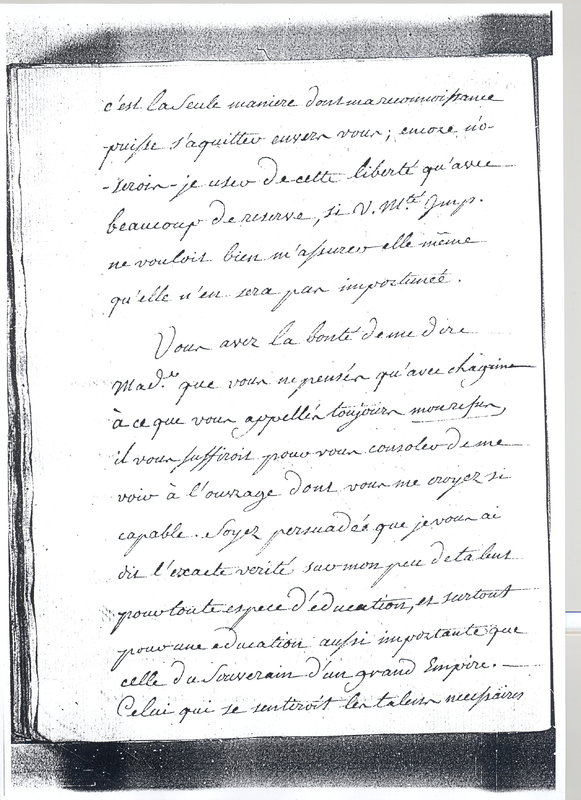 c'est la seule maniere dont ma reconnoissance
puisse s'aquitter envers vous; encore n'o-
-serois-je user de cette liberté qu'avec
beaucoup de reserve, si V. M.té Imp.
ne vouloit bien m'assurer elle même
qu'elle n'en sera pas importuneé.
Vous avez la bonté de me dire
Mad.e que vous ne pensés qu'avec chagrin
à ce que vous appellés toujours mon refus,
il vous suffiroit pour vous consoler de me
voir à l'ouvrage dont vous me croyez si
capable. Soyez persuadée que je vous ai
dit l'exacte verité sur mon peu de talent
pour toute espece d'éducation, et surtout
pour une education aussi importante que
celle du Souverain d'un grand Empire. —
Celui qui se sentiroit les talens necessaires